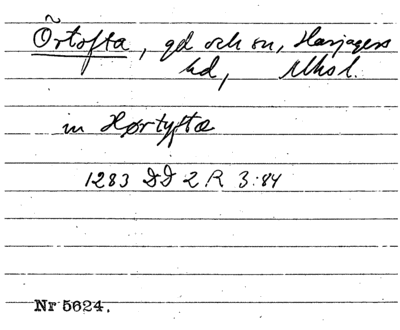 Örtofta, gd och sn, Harjagers
hd, Mhs l.
in Hørtyftæ
1283 DD 2 R 3:84
Nr 5624.